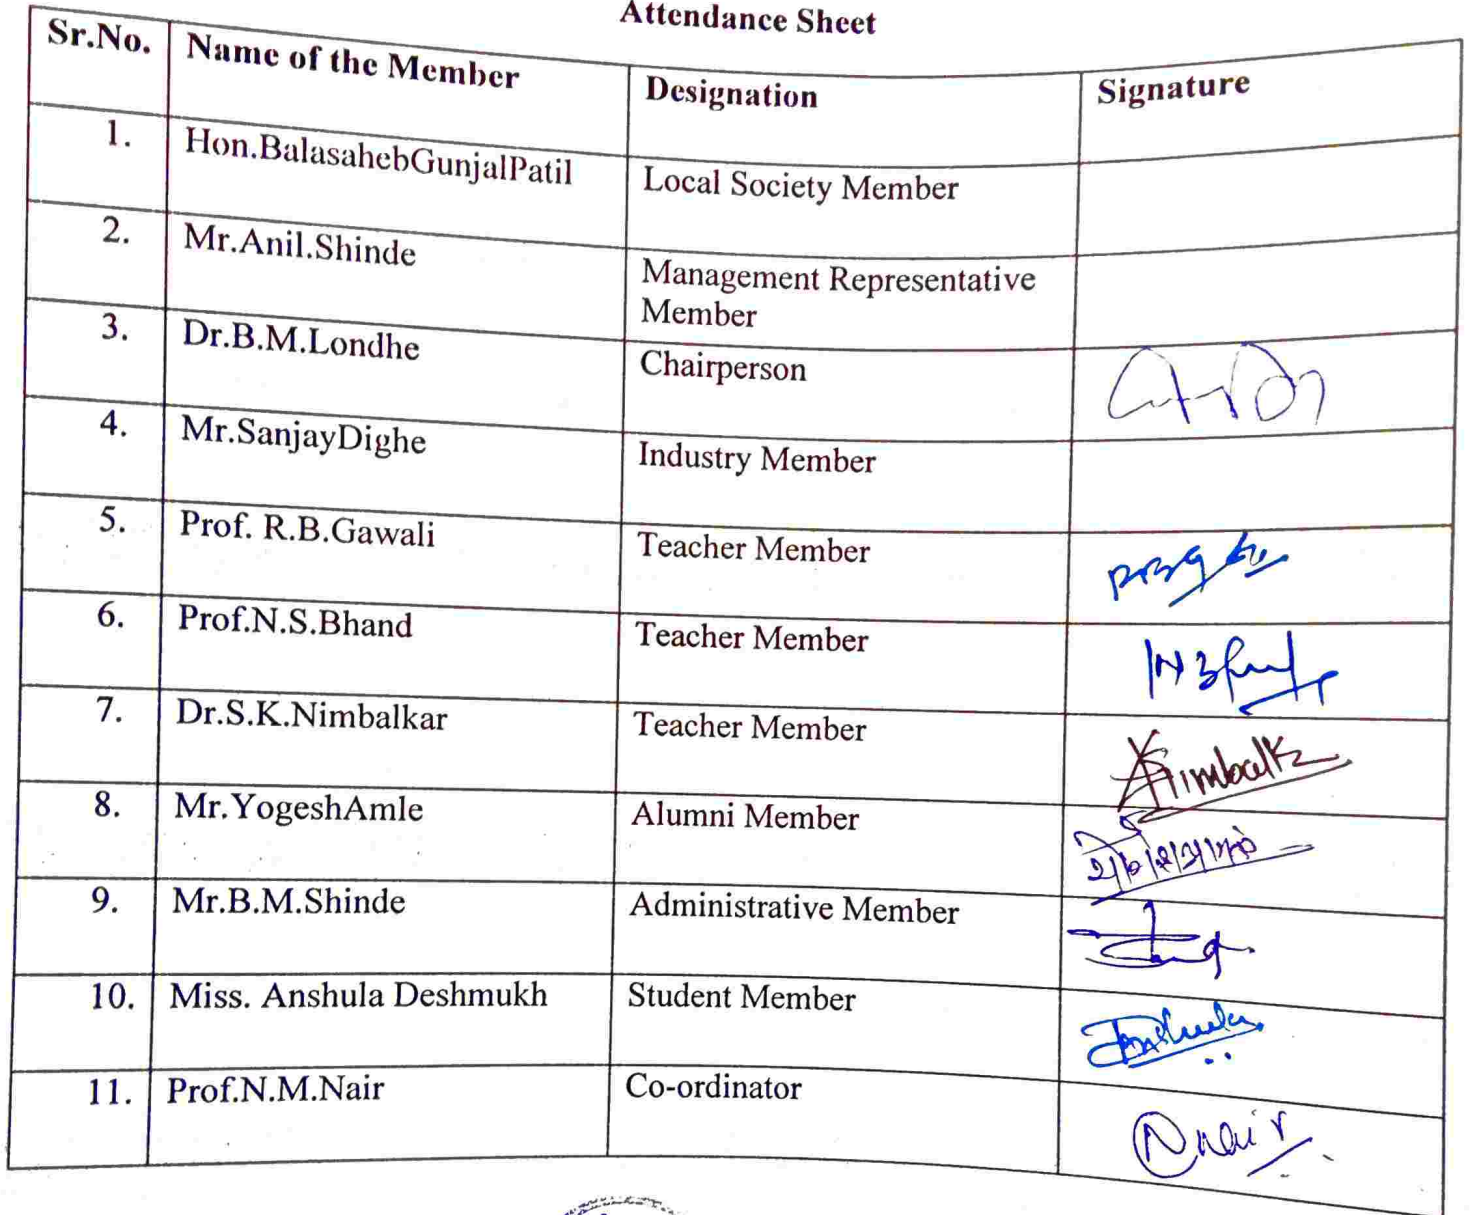 Attendance Sheet
Sr.No. Name of the Member Designation Signature
1. Hon.BalasahebGunjalPatil Local Society Member
2. Mr.Anil.Shinde Management Representative
Member
3. Dr.B.M.Londhe Chairperson
4. Mr.SanjayDighe Industry Member
5. Prof. R.B.Gawali Teacher Member
6. Prof.N.S.Bhand Teacher Member
7. Dr.S.K.Nimbalkar Teacher Member
8. Mr.YogeshAmle Alumni Member
9. Mr.B.M.Shinde Administrative Member
10. Miss. Anshula Deshmukh Student Member Anshula
11. Prof.N.M.Nair Co-ordinator Nair